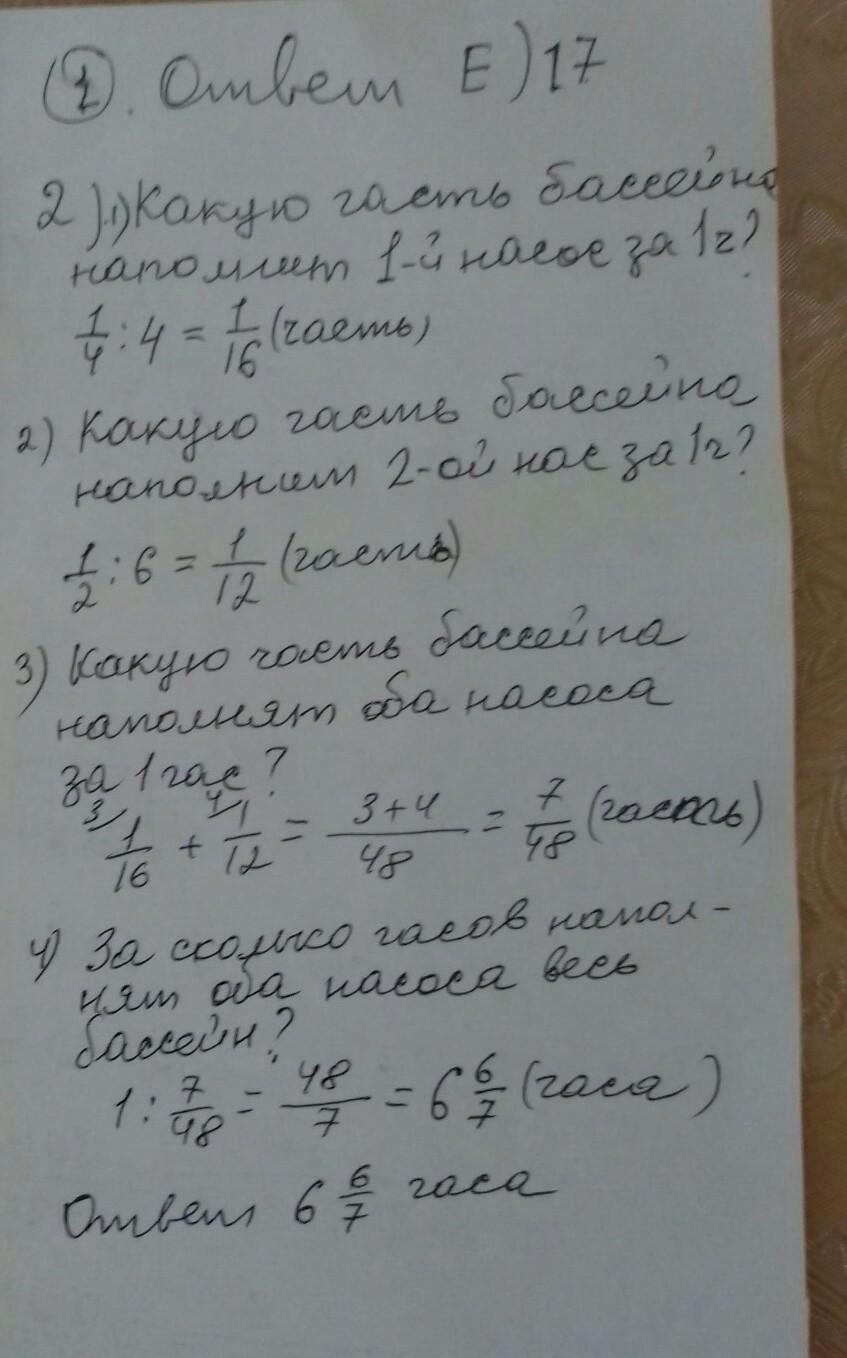 (1). Ответ Е) 17
2).1) Какую часть бассейна
наполнит 1-й насос за 1ч?
1/4 : 4 = 1/16 (часть)
2) Какую часть бассейна
наполнит 2-ой нас за 1ч?
1/2 : 6 = 1/12 (часть)
3) Какую часть бассейна
наполнят оба насоса
за 1 час?
3/ 1/16 + 4/ 1/12 = 3+4/48 = 7/48 (часть)
4) За сколько часов напол-
нят оба насоса весь
бассейн?
1 : 7/48 = 48/7 = 6 6/7 (часа)
Ответ 6 6/7 часа